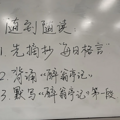 随到随读
1 先摘抄“每日格言”
2. 背诵“醉翁亭记”
3. 默写“醉翁亭记”第一段